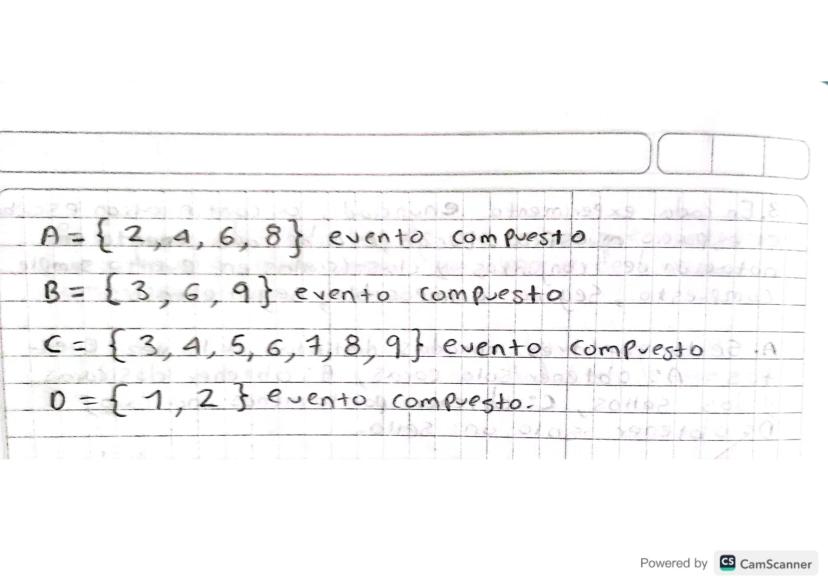 A = { 2, 4, 6, 8 } evento compuesto
B = { 3, 6, 9 } evento compuesto
C = { 3, 4, 5, 6, 7, 8, 9 } evento compuesto
D = { 1, 2 } evento compuesto.
Powered by CS CamScanner